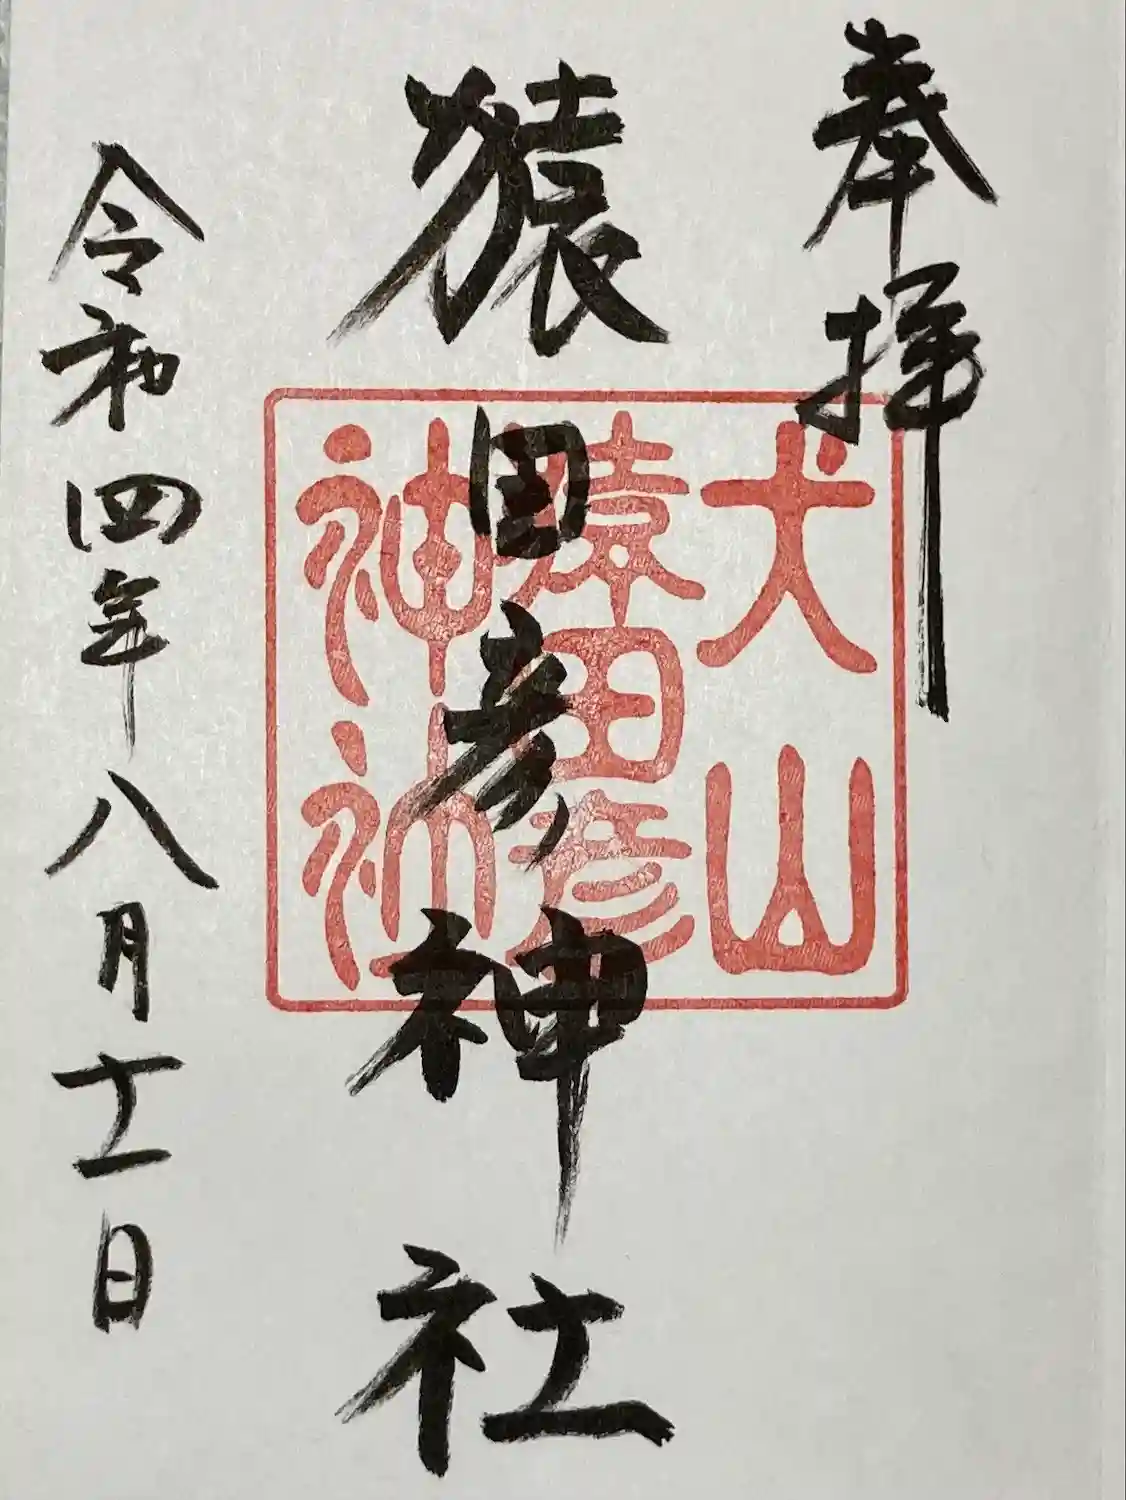 奉拝
猿田彦神社
令和四年八月十一日
犬山
猿田彦
神社